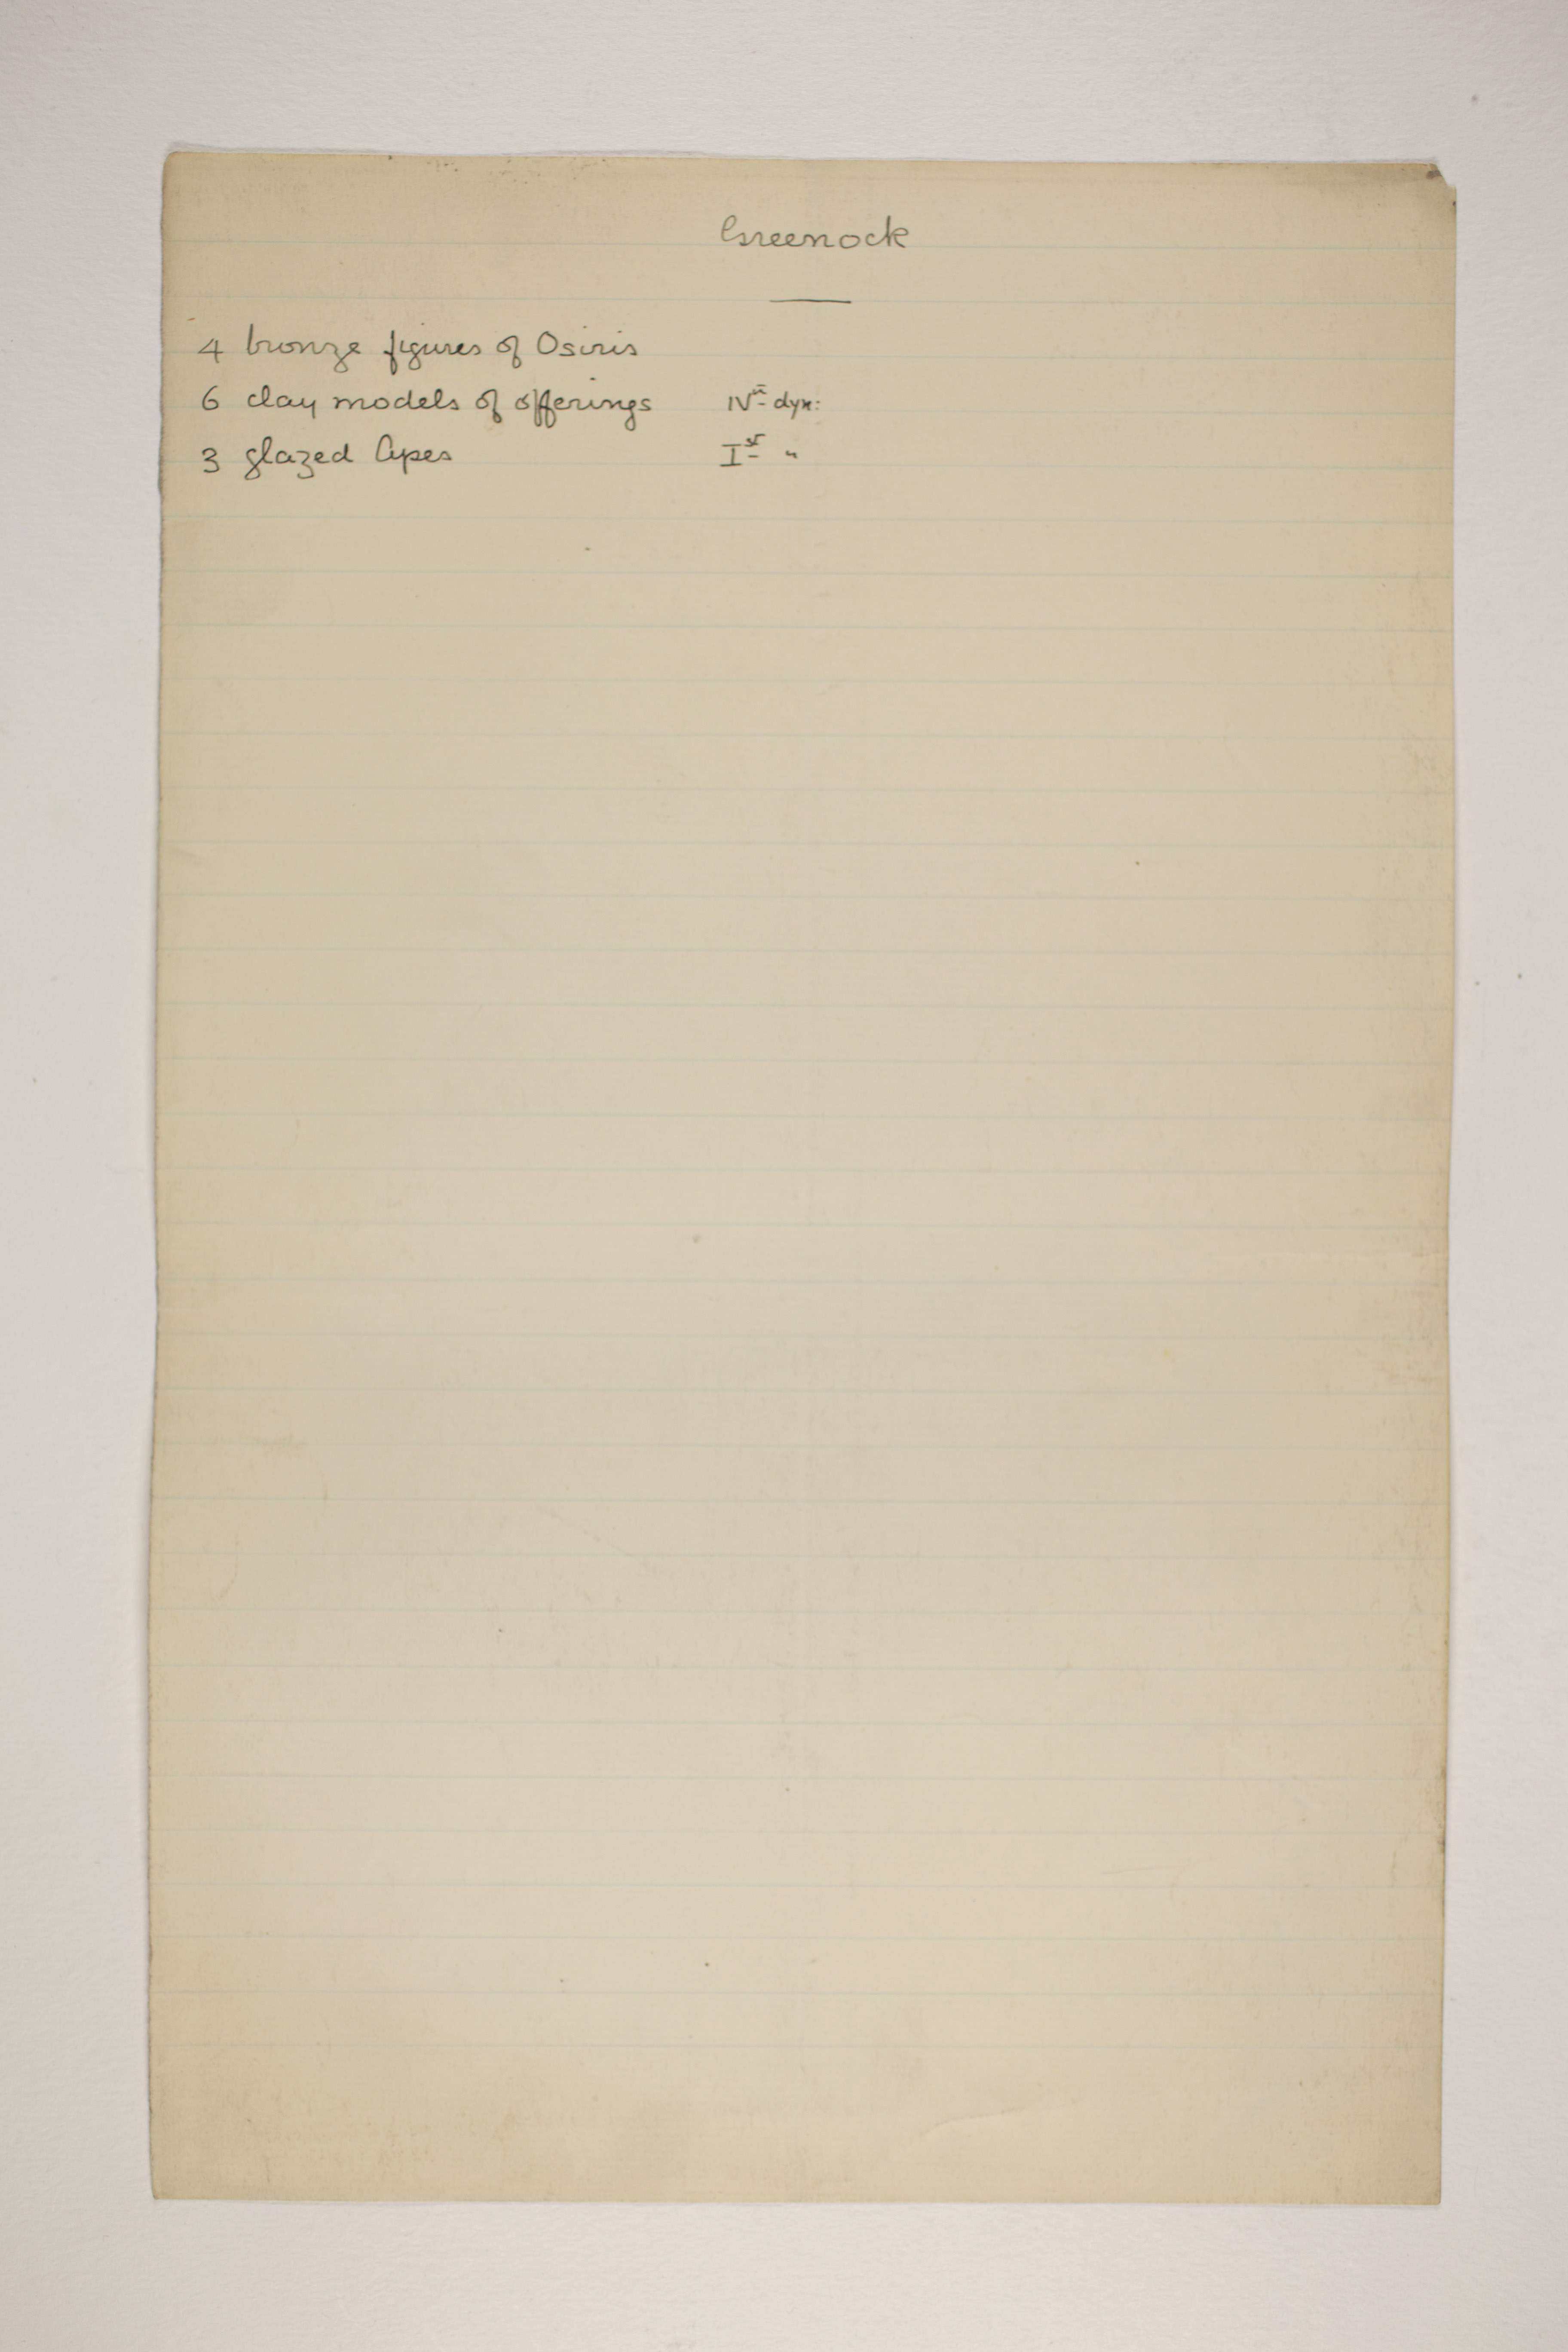 Greenock
4 bronze figures of Osiris
6 clay models of offerings IVth dyn:
3 glazed Apes Ist "